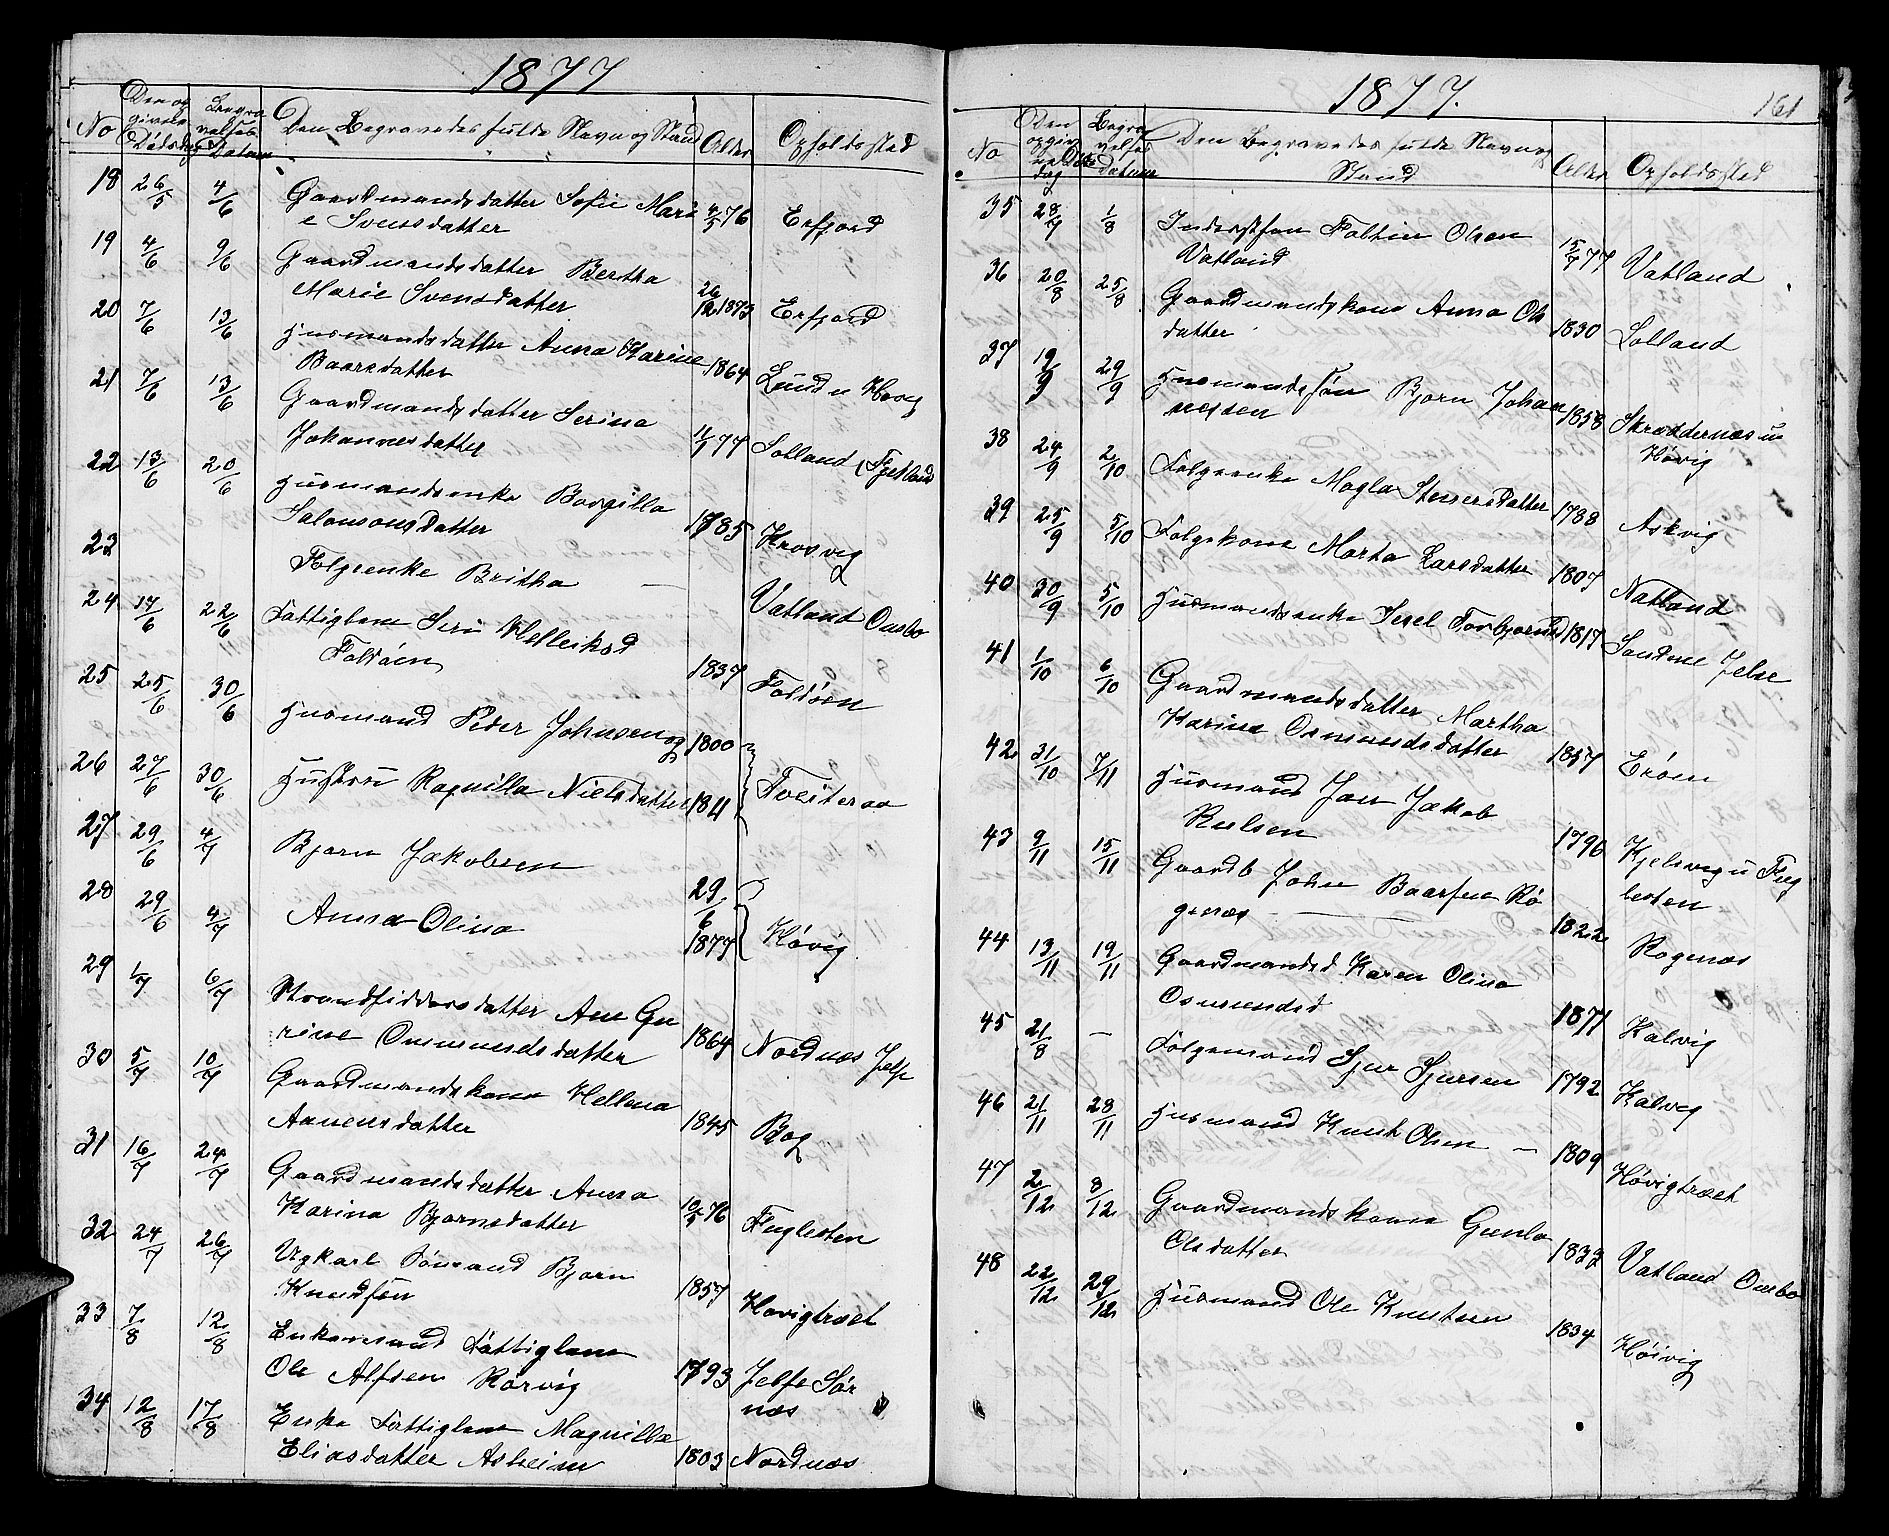 1877
No
Den op
givele
Dødsdag
Begra
velses
Datum
Den Begravedes fulde Navn og Stand
Alder
Opholdsted
18 26/5 4/6 Gaardmandsdatter Sofie Mari
e Svensdatter 4/5 76 Erfjord
19 4/6 9/6 Gaardmandsdatter Bertha
Marie Svensdatter 26/12 1873 Erfjord
20 7/6 13/6 Husmandsdatter Anna Karine
Baarsdatter 1864 Lund u Hovig
21 7/6 13/6 Gaardmandsdatter Serina
Johannesdatter 11/1 77 Lolland (Fjetland
22 13/6 20/6 Husmandsenke Borgilla
Salomonsdatter 1785 Krosvig
23 Folgeenke Britha — Vatland Ombo
24 17/6 22/6 Fattiglem Siri Helleiksd
Foldøen 1837 Foldøen
25 25/6 30/6 Husmand Peder Johnsen og 1800
26 27/6 30/6 Hustru Ragnilla Nielsdatter 1811 Tveiteraa
27 29/6 4/7 Bjørn Jakobsen
28 29/6 4/7 Anna Olina 29/6 1877 Høvig
29 1/7 6/7 Strandsiddersdatter Ane Gu
rine Ommundsdatter 1864 Nordnæs Jelse
30 5/7 10/7 Gaardmandskone Hellena
Aanensdatter 1845 Bog
31 16/7 24/7 Gaardmandsdatter Anna
Karina Bjørnsdatter 10/5 76 Fuglesten
32 24/7 26/7 Ugkarl Sømand Bjørn
Knudsøn 1857 Høvigtræet
33 7/8 12/8 Enkemand Fattiglem
Ole Alfsen Rørvig 1793 Jelse Sør
næs
34 12/8 17/8 Enke Fattiglem Magnilla
Eliasdatter Asheim 1803 Nordnæs
1877.
161
No
Den
opgiv
Døds
dag
Begra
velses
datum
Den Begravedes fulde Navn og
Stand
Alder
Opholdsted
35 28/7 1/8 Inderstsøn Foltin Olsen
Vatland 15/7 77 Vatland
36 20/8 25/8 Gaardmandskone Anna Ols
datter 1830 Lolland
37 19/9 29/9 Husmandssøn Bjørn Johan
nessen 1858 Skreddernæs u
Høvig
38 24/9 2/10 Folgeenke Magla Steinersdatter 1788 Askvig
39 25/9 5/10 Folgekone Marta Larsdatter 1807 Natland
40 30/9 5/10 Husmandsenke Isael Torbjørnsd 1817 Sandene Jelse
41 1/10 6/10 Gaardmandsdatter Martha
Karine Osmundsdatter 1857 Erøen
42 31/10 7/11 Husmand Jan Jakob
Rulsen 1796 Kjelsvig u Fug
lesten
43 9/11 15/11 Gaardb John Baarsen Rø
genæs — 1822 Rogenæs
44 13/11 19/11 Gaardmandsd Karen Olina
Osmundsd 1871 Kalvig
45 21/8 — Folgemand Sjur Sjursen 1792 Kalvig
46 21/11 28/11 Husmand Knut Olsen — 1809 Høvigtræet
47 2/12 8/12 Gaardmandskone Gunla
Olsdatter 1833 Vatland Ombo
48 22/12 29/12 Husmand Ole Knutsen 1834 Høivig